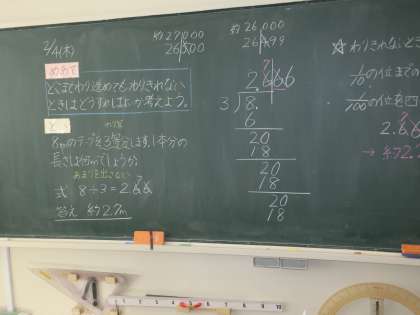 2/4(木)
めあて
どこまでわり進めてもわりきれない
ときはどうすればよいか考えよう。
8mのテープを3等分します。1本分の
長さは何mでしょうか。
式 8÷3=2.66
7
答え 約2.7m
約27000
26500
約26000
26499
7
2.666
3)8.
6
20
18
20
18
20
18
☆わりきれないとき
1/10の位までの
1/100の位を四
2.66
7
→約2.7